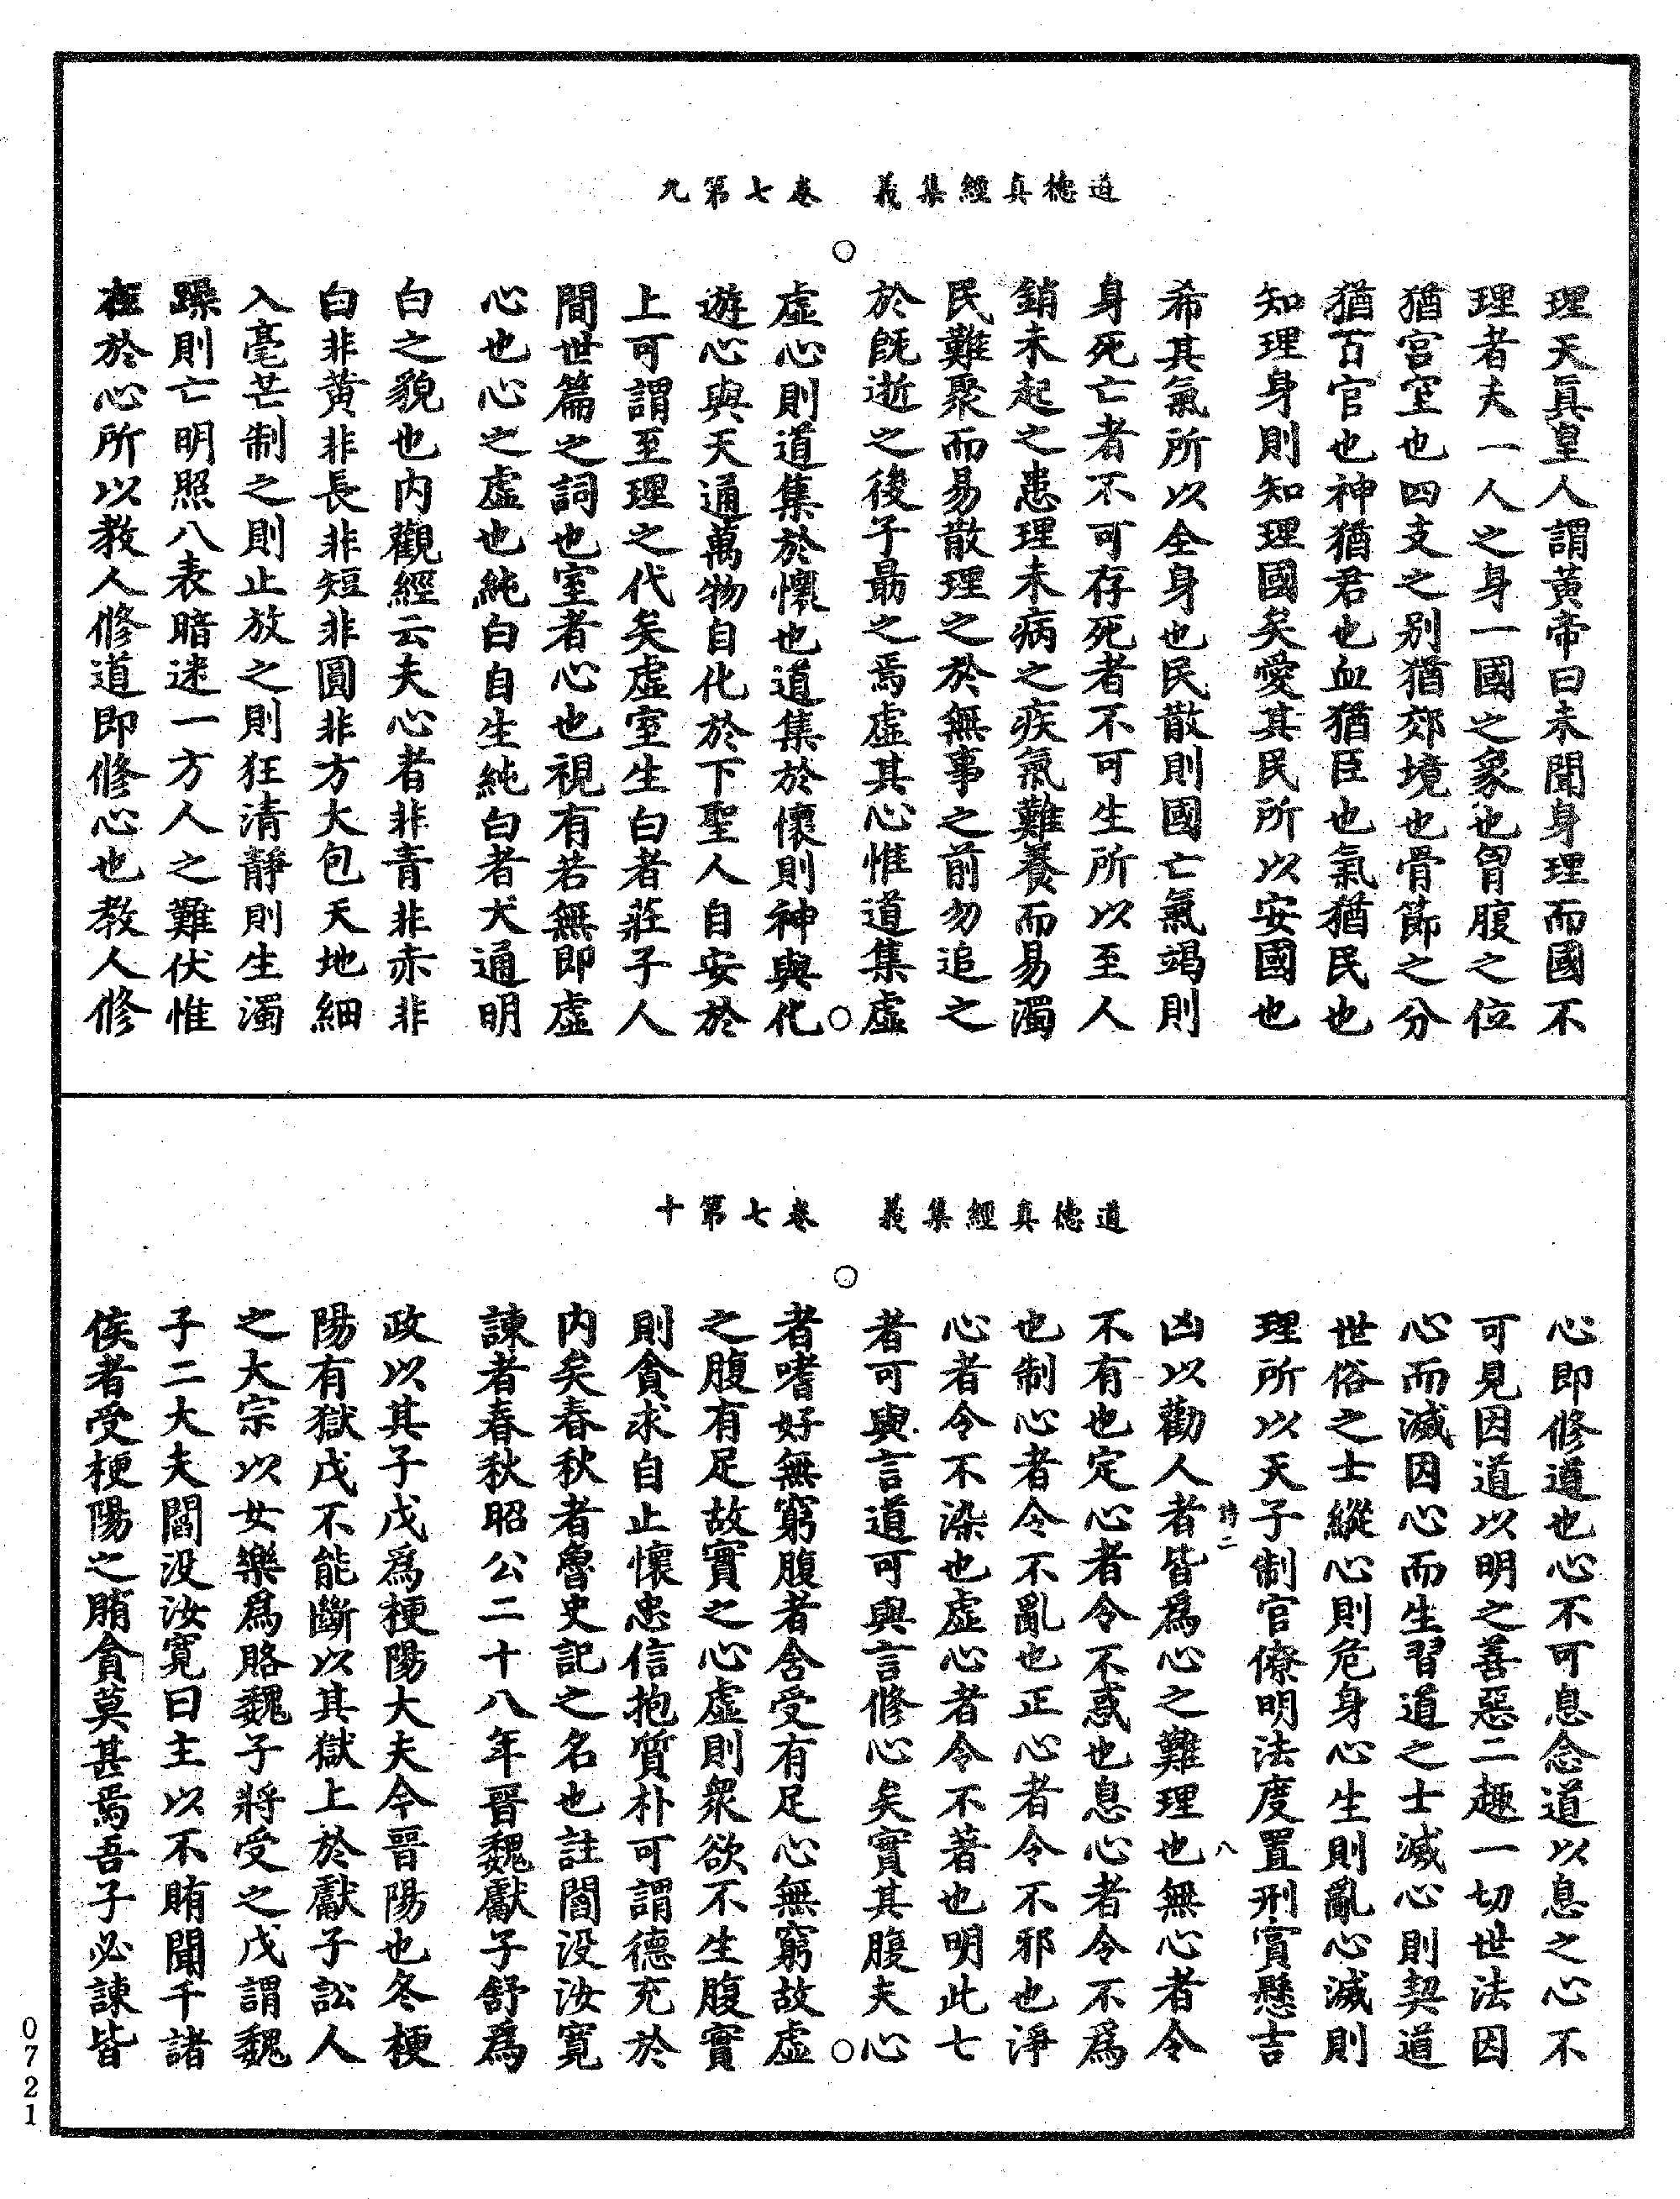 道德真經集義　卷七第九
理天真皇人謂黄帝曰未聞身理而國不
理者夫一人之身一國之象也胷腹之位
猶宫室也四支之别猶郊境也骨節之分
猶百官也神猶君也血猶臣也氣猶民也
知理身則知理國矣愛其民所以安國也
希其氣所以全身也民散則國亡氣竭則
身死亡者不可存死者不可生所以至人
銷未起之患理未病之疾氣難養而易濁
民難聚而易散理之於無事之前勿追之
於旣逝之後子勗之焉虛其心惟道集虛
虛心則道集於懷也道集於懷則神與化
遊心與天通萬物自化於下聖人自安於
上可謂至理之代矣虛室生白者莊子人
間世篇之詞也室者心也視有若無即虛
心也心之虛也純白自生純白者犬通明
白之貌也内觀經云夫心者非青非赤非
白非黄非長非短非圓非方大包天地細
入毫芒制之則止放之則狂清靜則生濁
躁則亡明照八表暗迷一方人之難伏惟
在於心所以教人修道即修心也教人修
道德真經集義　卷七第十
心即修道也心不可息念道以息之心不
可見因道以明之善惡二趣一切世法因
心而滅因心而生習道之士滅心則契道
世俗之士縱心則危身心生則亂心滅則
理所以天子制官僚明法度置刑賞懸吉
詩二　八
凶以勸人者皆爲心之難理也無心者令
不有也定心者令不惑也息心者令不爲
也制心者令不亂也正心者令不邪也淨
心者令不染也虛心者令不著也明此七
者可與言道可與言修心矣實其腹夫心
者嗜好無窮腹者含受有足心無窮故虛
之腹有足故實之心虛則衆欲不生腹實
則貪求自止懷忠信抱質朴可謂德充於
内矣春秋者魯史記之名也註閻没汝寛
諫者春秋昭公二十八年晉魏獻子舒爲
政以其子戊爲梗陽大夫今晉陽也冬梗
陽有獄戊不能斷以其獄上於獻子訟人
之大宗以女樂爲賂魏子將受之戊謂魏
子二大夫閻没汝寛曰主以不賄聞千諸
侯者受梗陽之賄貪莫甚焉吾子必諫皆
0721